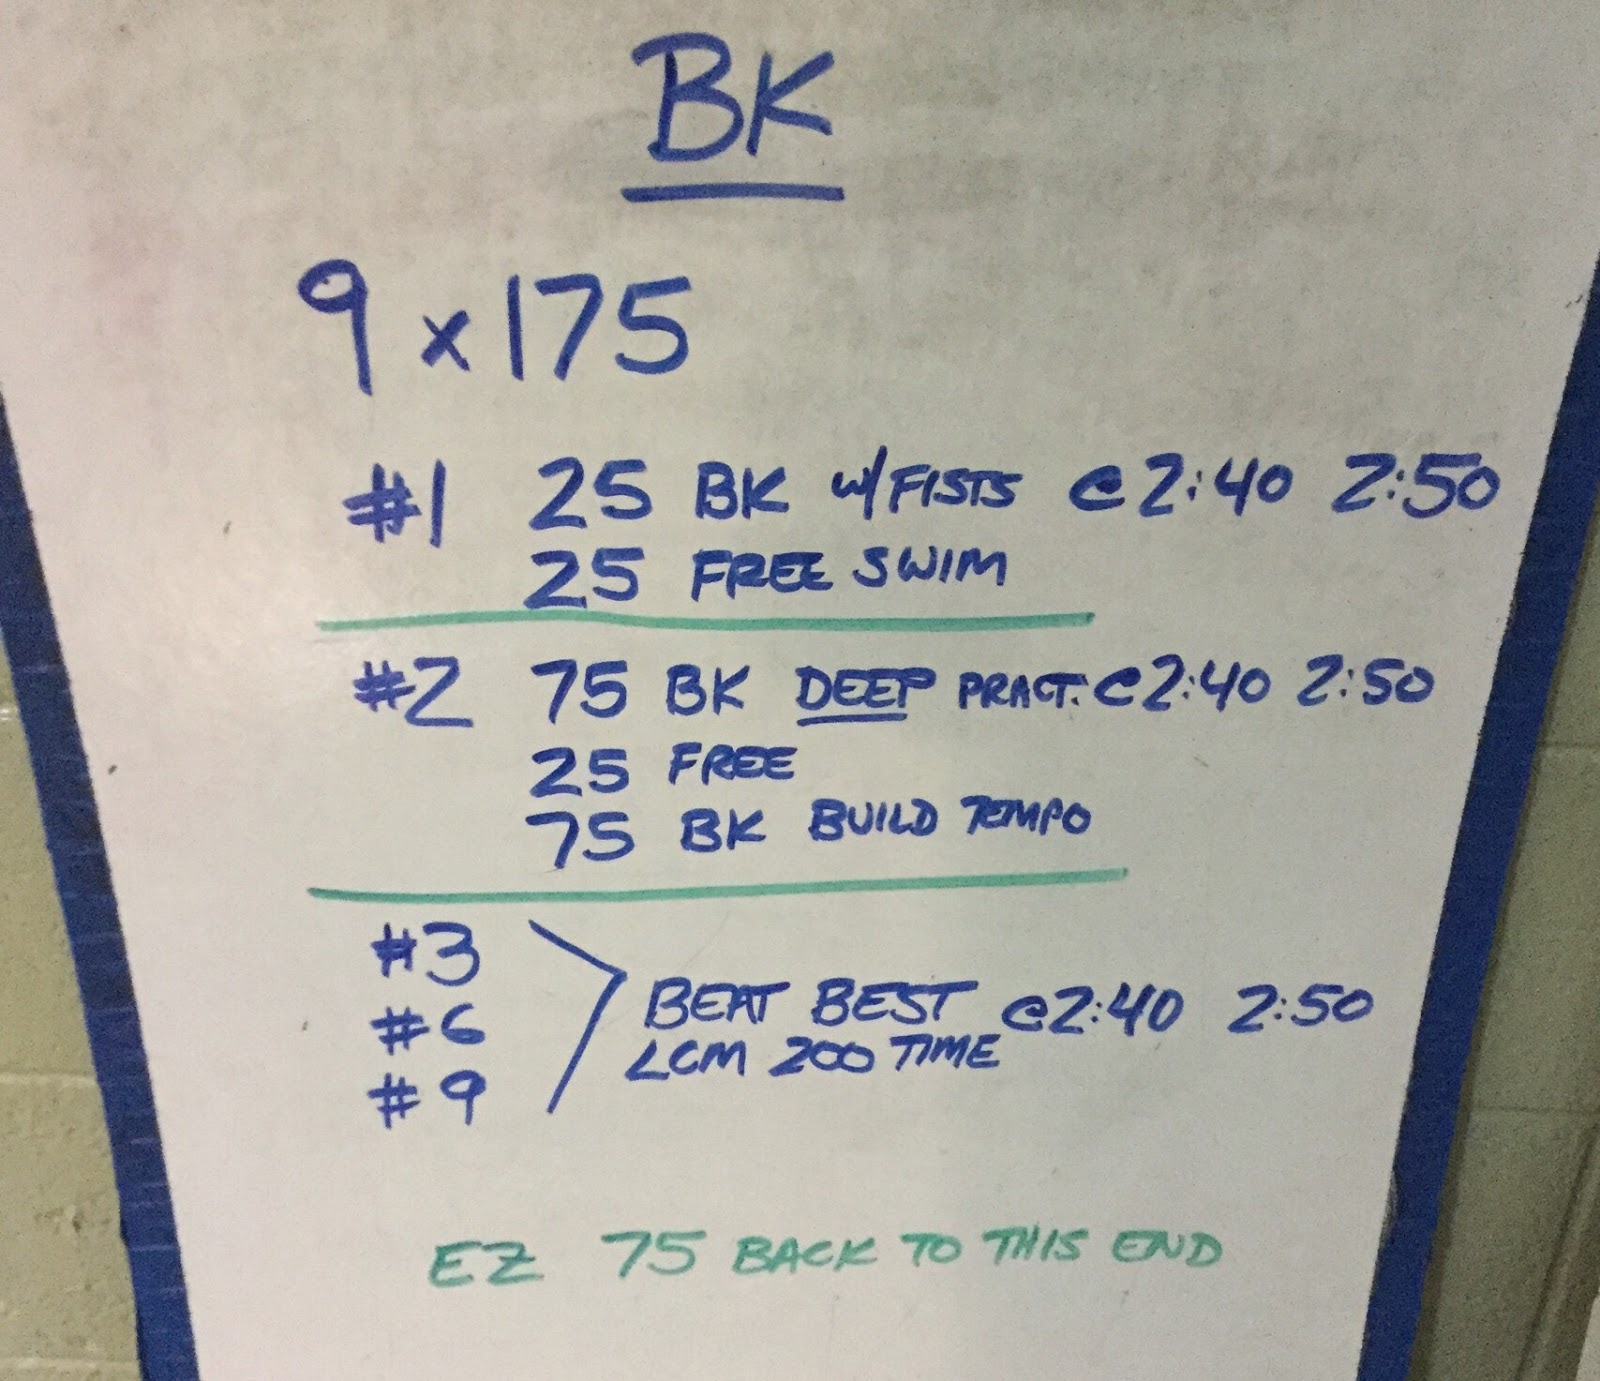 BK
9 x 175
#1 25 BK w/FISTS @2:40 2:50
25 FREE SWIM
#2 75 BK DEEP PRACT. @2:40 2:50
25 FREE
75 BK BUILD TEMPO
#3
#6
#9
BEAT BEST @2:40 2:50
LCM 200 TIME
EZ 75 BACK TO THIS END